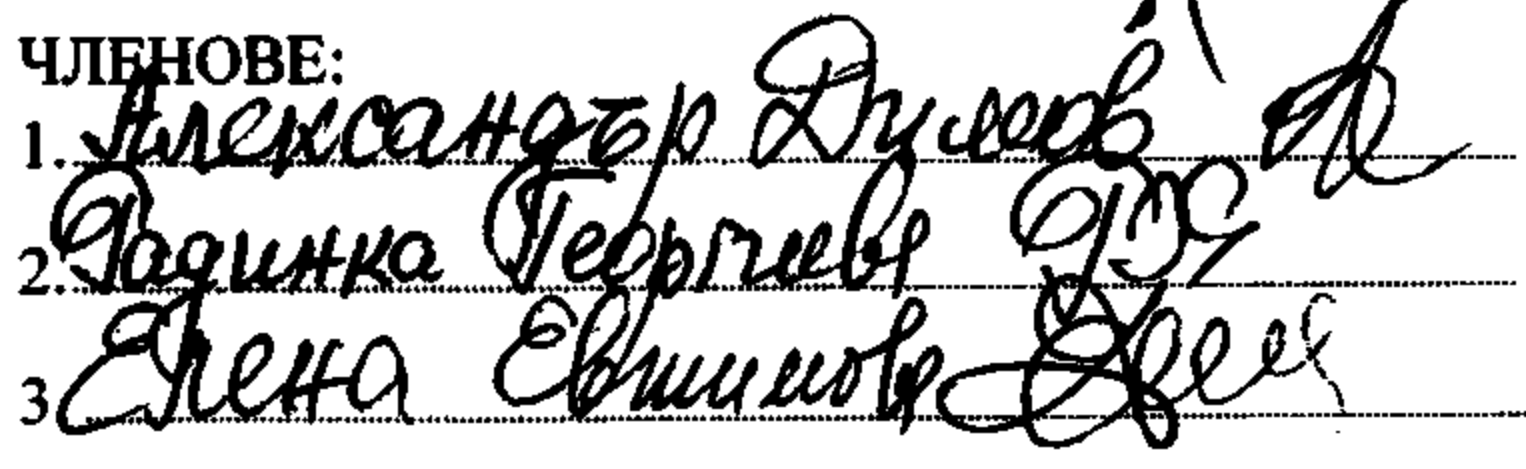 ЧЛЕНОВЕ:
1. Александър
2. Радинка Георгиева
3. Елена Евтимова